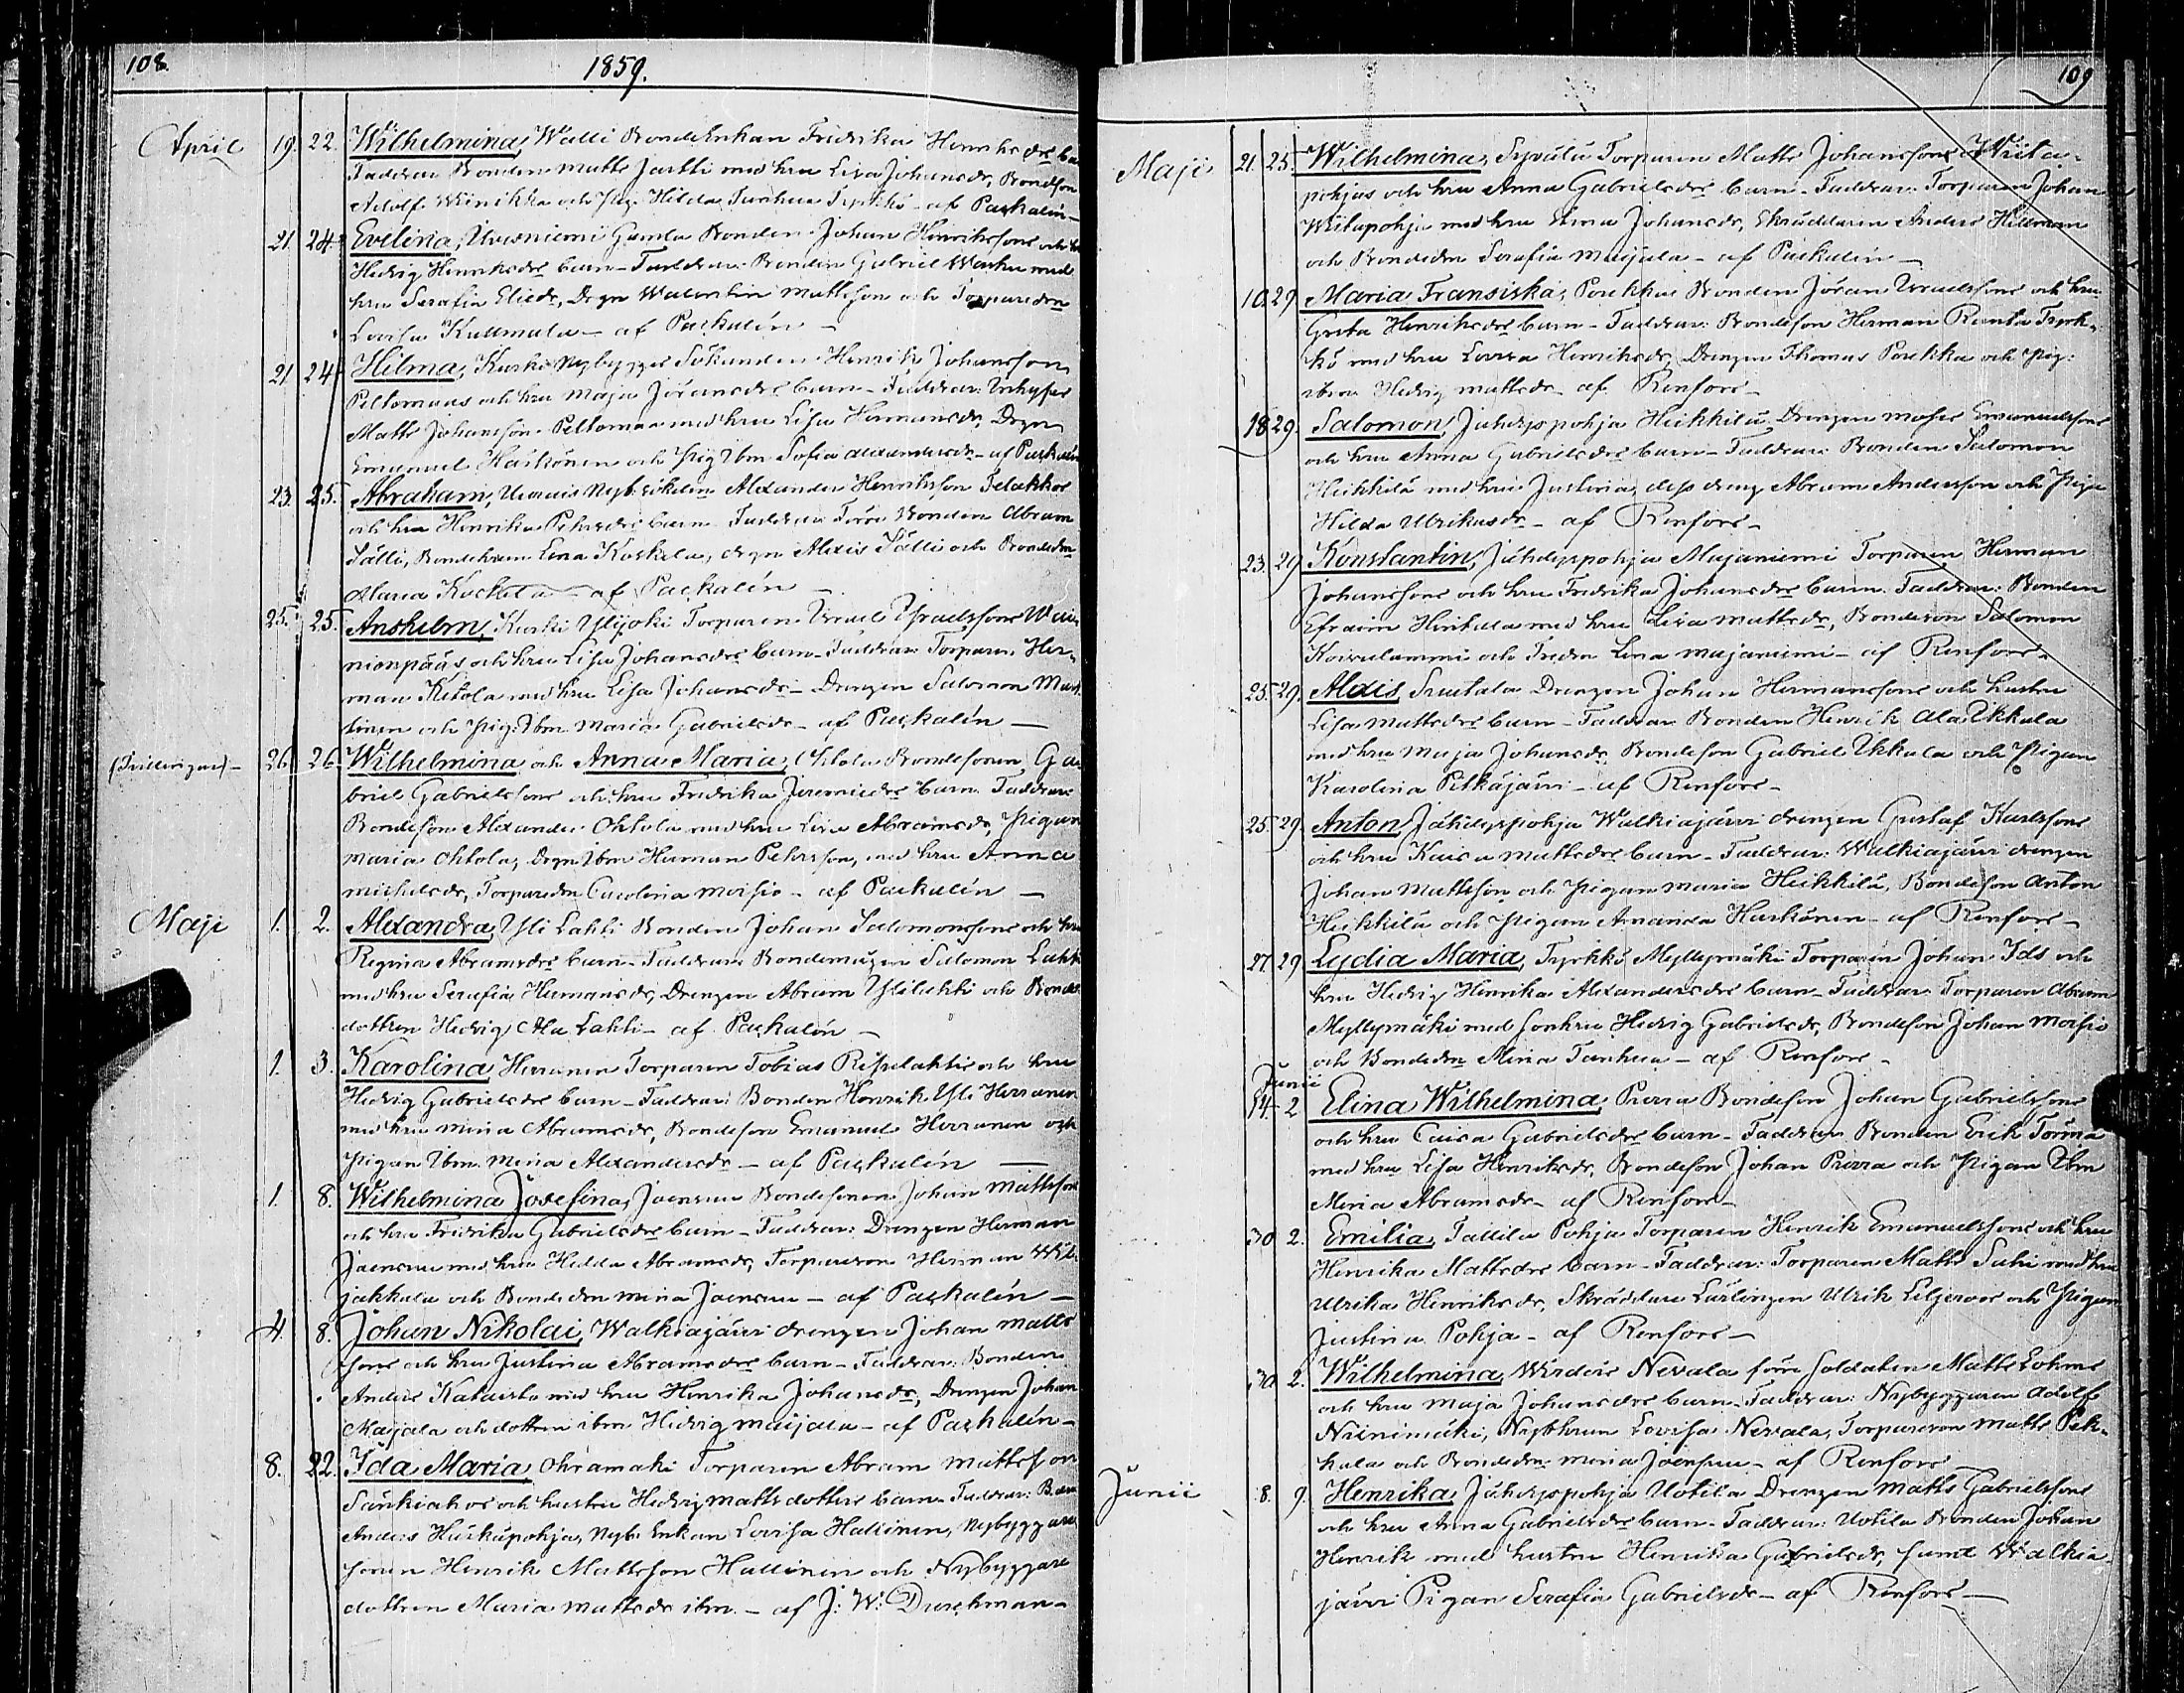 108.
1859.
April 19. 22. Wilhelmina, Wälli Bonde Enkan Fredrika Henriksdrs ba
Faddrar Bonden Matts Jartti med hru Lisa Johansdr, Bondson
Adolf Winikka och Pig. Hilda Tanhua Tyrkkö - af Paskalin -
21. 24 Evelina, Uvusniemi Gamla Bonden Johan Henrikssons och hru
Hedvig Henriksdrs barn - Faddrar: Bonden Gabriel Warku med
hru Serafia Eliedr, Drgn Walentin Mattsson och Torparedrn
Lovisa Kullmala - af Paskalin -
21 24 Hilma, Kurki Nybygges Sökanden Henrik Johansson
Peltomaas och hru Maja Jöransdrs barn - Faddrar: Inhyses
Matts Johansson Peltomaa med hru Lisa Hermansdr, Drgn
Emanuel Haikönen och Pig Ibm Sofia Alexandersdr - af Paskalin
23. 25. Abraham, Nybruklen Alexander Henriksson Telakkos
och hru Henrika Pehrsdrs barn Faddrar: Förre Bonden Abram
Sälli, Bondehrun Lena Koskela, drgn Alexis Sälli och Bondedrn
Maria Koskela - af Paskalin
25. 25. Anshelm, Kurki Ylijoki Torparen Israel Israelssons Wai-
nionpääs och hru Lisa Johansdrs barn - Faddrar: Torparen Her-
man Ketola med hru Lisa Johansdr - Drengen Salomon Mar-
tinen och Pig. Ibm Maria Gabrielsdr - af Paskalin -
(Tvillingar) - 26 26 Wilhelmina och Anna Maria, Ohtola Bondesonen Ga-
briel Gabrielssons och hru Fredrika Jeremiedrs barn Faddrar:
Bondeson Alexander Ohtola med hru Lisa Abramsdr, Pigan
Maria Ohtola, Drgn Ibm Herman Pehrsson, med hru Anna
Michelsdr, Torparedrn Carolina Moisio - af Paskalin -
Maji 1. 2. Alexandra, Yli Lahti Bonden Johan Salomonssons och hru
Regina Abramsdrs barn - Faddrar: Bondemågen Salomon Lahti
med hru Serafia Hermansdr, Drengen Abram Ylilahti och Bonde
dottren Hedvig Ala Lahti - af Paskalin -
1. 3. Karolina, Herranen Torparen Tobias Ristilahtis och hru
Hedvig Gabrielsdrs barn - Faddrar: Bonden Henrik Yli Herranen
med hru Mina Abramsdr, Bondeson Emanuel Herranen och
Pigan Ibm Mina Alexandersdr - af Paskalin -
1. 8. Wilhelmina Josefina, Joensuu Bondesonen Johan Mattssons
och hru Fredrika Gabrielsdrs barn - Faddrar: Drengen Herman
Joensuu med hru Hedda Abramsdr, Torpareson Herman Wil-
jakkala och Bondedrn Mina Joensuu - af Paskalin -
4. 8. Johan Nikolai, Walkiajärvi drengen Johan Matts
sons och hru Justina Abramsdrs barn - Faddrar: Bonden
Anders Katavisto med hru Henrika Johansdr, Drengen Johan
Majala och dottren ibm Hedvig Maijala - af Paskalin -
8. 22. Ida Maria, Ohramaki Torparen Abram Mattsson
Särkiahos och hustru Hedvig Mattsdotters barn Faddrar: Bonden
Anders Harkäpohja, Nyb. Enkan Lovisa Hallinen, Nybyggare
sonen Henrik Mattsson Hallinen och Nybyggare
dottren Maria Mattsdr ibm. - af J: W: Durchman -
109
Maji 21. 25. Wilhelmina, Syvälä Torparen Matts Johanssons Wiita-
pohjas och hru Anna Gabrielsdrs barn - Faddrar: Torparen Johan
Wiitapohja med hru Johansdr, Skräddaren Anders Hillman
och Bondedrn Serafia Maijala - af Paskalin -
10. 29. Maria Fransiska, Porkka Bonden Jöran Israelssons och hru
Greta Henriksdrs barn - Faddrar: Bondeson Herman Ranta Tyrk-
kö med hru Lovisa Henriksdr, Drengen Thomas Porkka och Pig:
ibm Hedvig Mattsdr - af Renfors -
18 29. Salomon, Jähdyspohja Heikkilä Drengen Moses Emanuelssons
och hru Anna Gabrielsdrs barn - Faddrar: Bonden Salomon
Heikkilä med hru Justina, dess dreng Abram Andersson och Pigan
Hilda Ulrikasdr - af Renfors -
23. 29 Konstantin, Jähdyspohja Majaniemi Torparen Herman
Johanssons och hru Fredrika Johansdrs barn. Faddrar: Bonden
Efraim Hintala med hru Lisa Mattsdr, Bondeson Salomon
Koivulammi och Lena Majaniemi - af Renfors -
25. 29. Alexis, Sruutala Drengen Johan Hermanssons och hustru
Lisa Mattsdrs barn - Faddrar: Bonden Henrik Ala Ukkala
med hru Maja Johansdr, Bondeson Gabriel Ukkola och Pigan
Karolina Pitkäjärvi - af Renfors -
25. 29. Anton, Jähdyspohja Walkiajärvi drengen Gustaf Karlssons
och hru Kaisa Mattsdrs barn - Faddrar: Walkiajärvi drengen
Johan Mattsson och Pigan Maria Heikkilä, Bondeson Anton
Heikkilä och Pigan Amanda Harkönen - af Renfors -
27. 29 Lydia Maria, Tyrkkö Myllymäki Torparen Johan Ids och
hru Hedvig Henrika Alexandersdrs barn - Faddrar: Torparen Abram
Myllymäki med sonhru Hedvig Gabrielsdr, Bondeson Johan Moisio
och Bondedrn Mina Tanhua - af Renfors -
Junii
14. 2 Elina Wilhelmina, Purra Bondeson Johan Gabrielssons
och hru Caisa Gabrielsdrs barn - Faddrar: Bonden Erik Törmä
med hru Lisa Henriksdr, Bondeson Johan Purra och Pigan Ibm
Maria Abramsdr - af Renfors -
30 2. Emilia, Tallila Pohja Torparen Henrik Emanuelssons och hru
Henrika Mattsdrs barn - Faddrar: Torparen Matts Salu med hru
Ulrika Henriksdr, Skräddare Lärlingen Ulrik Liljeroos och Pigan
Justina Pohja - af Renfors -
30 2. Wilhelmina, Wirdois Nevala förre soldaten Matts Lohms
och hru Maja Johansdrs barn - Faddrar: Nybyggaren Adolf
Niinimäki, Nybhrun Lovisa Nevala, Torpareson Matts Pek-
kala och Bondedrn Maria Joensuu - af Renfors
Junii 8. 9. Henrika, Jähdyspohja Uotila Drengen Matts Gabrielssons
och hru Anna Gabrielsdrs barn - Faddrar: Uotila Bonden Johan
Henrik med hustru Henrika Gabrielsdr, samt Walkia
järvi Pigan Serafia Gabrielsdr - af Renfors -